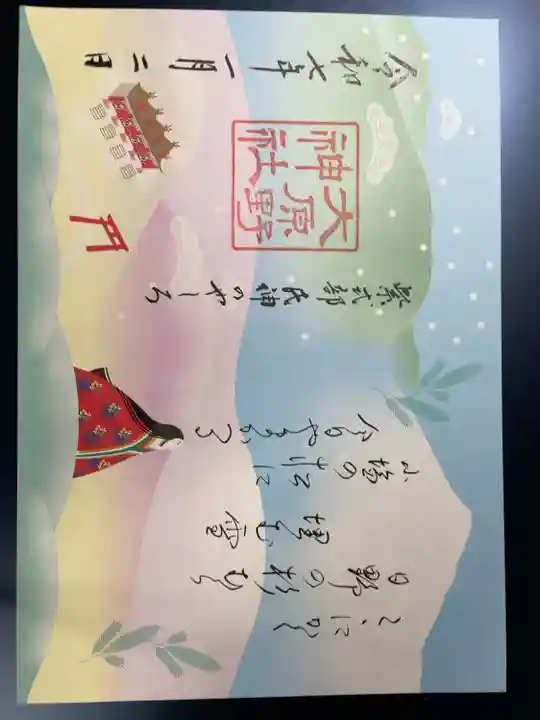 ここにかく
日野の杉むら
埋む雪
小塩の松に
今日やまがへる
紫式部氏神のやしろ
大原野
神社
令和七年一月二日